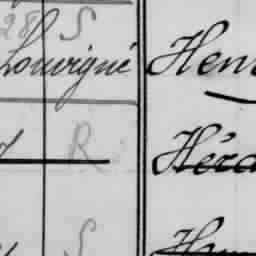 28 S
Louvigné Hen
R Héra
S